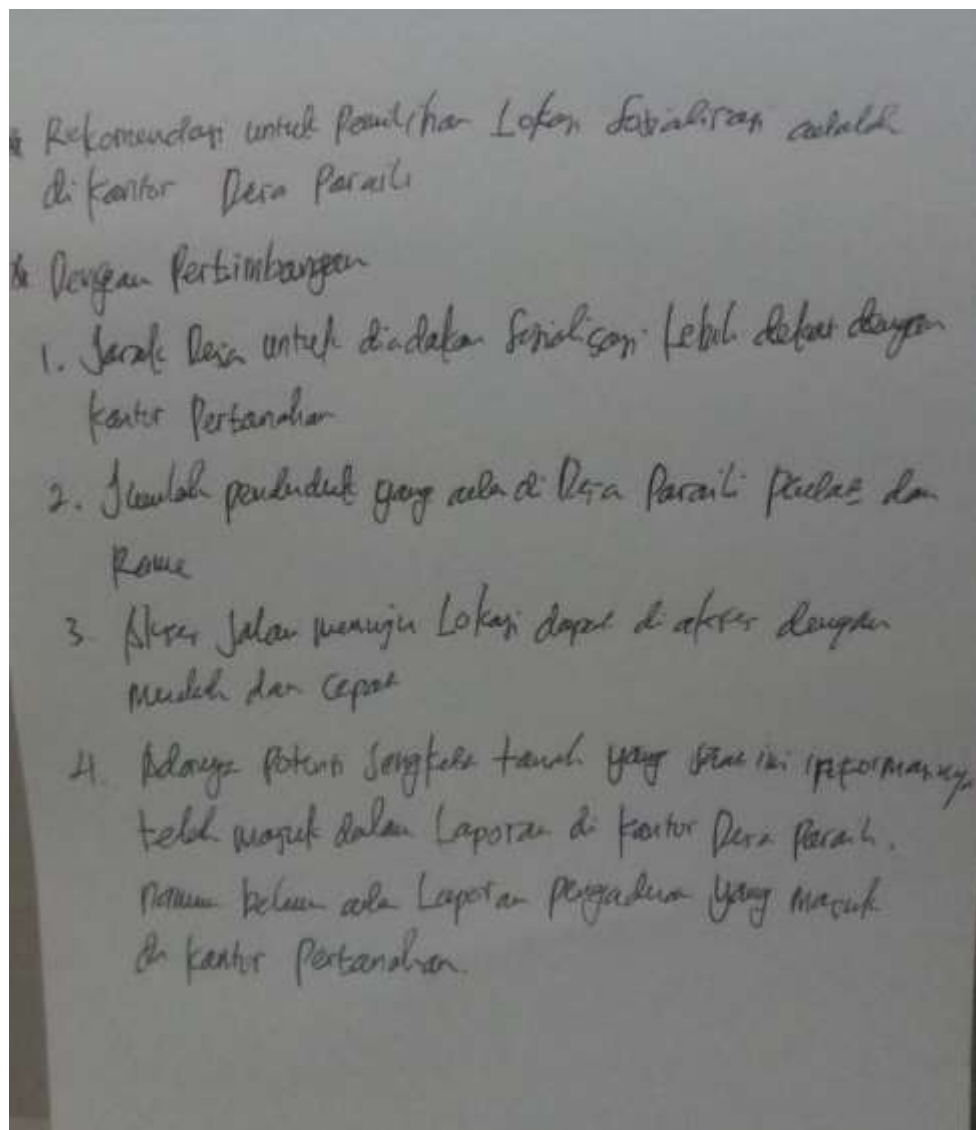 * Rekomendasi untuk Pemilihan Lokasi Sosialisasi adalah
di kantor Desa Paraili
* Dengan Pertimbangan
1. Jarak Desa untuk diadakan Sosialisasi Lebih dekat dengan
kantor Pertanahan
2. Jumlah penduduk yang ada di Desa Paraili padat dan
Rame
3. Akses Jalan menuju Lokasi dapat di akses dengan
mudah dan cepat
4. Adanya Potensi Sengketa tanah yang saat ini informasinya
telah masuk dalam Laporan di kantor Desa Paraili.
namun belum ada Laporan pengaduan yang masuk
di kantor Pertanahan.